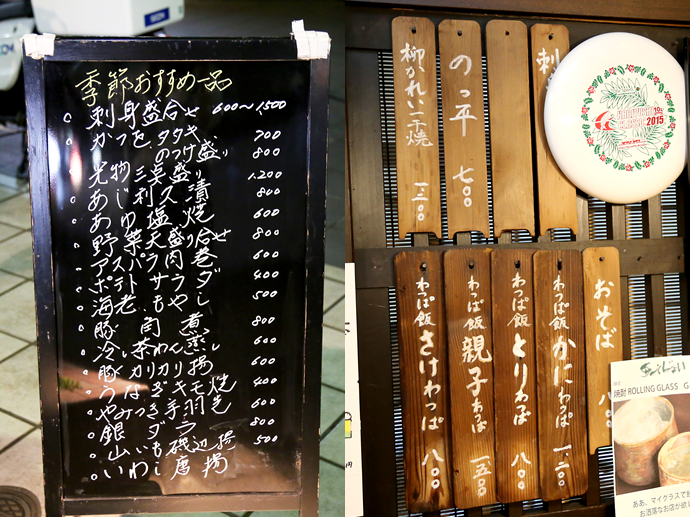 季節おすすめ一品
刺身盛合せ 600〜1,500
かつを タタキ 700
のっけ盛り 800
光物三点盛り 1,200
あじ利久漬 800
あゆ塩焼 600
野菜天盛り合せ 800
アスパラ肉巻 600
ポテトサラダ 400
海老もやし 500
豚角煮 800
冷し茶わん蒸し 600
豚カリカリ揚 600
うなぎキモ焼 400
やみつき手羽先 600
銀ダラ 800
山いも磯辺揚 500
いわし唐揚
柳かれい一干焼 一三〇〇
のっ平 七〇〇
刺
わっぱ飯 さけわっぱ 八〇〇
わっぱ飯 親子わっぱ 一一五〇
わっぱ飯 とりわっぱ 八〇〇
わっぱ飯 かにわっぱ 一二〇〇
おそば 八〇〇
2015
焼酎 ROLLING GLASS G
ああ、マイグラスで
お洒落なお店が